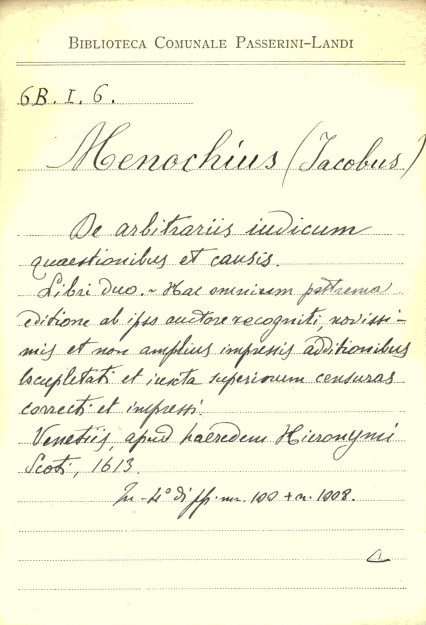 BIBLIOTECA COMUNALE PASSERINI-LANDI
6B. I. 6.
Menochius (Jacobus)
De arbitrariis iudicum
quaestionibus et causis.
Libri duo. ~ Hac omnium postrema
editione ab ipso auctore recogniti, novissi-
mis et non amplius impressis additionibus
locupletati et iuxta superiorum censuras
correcti et impressi.
Venetiis, apud haeredem Hieronymi
Scoti, 1613.
In-4° di ff. nn. 100 + n. 1008.